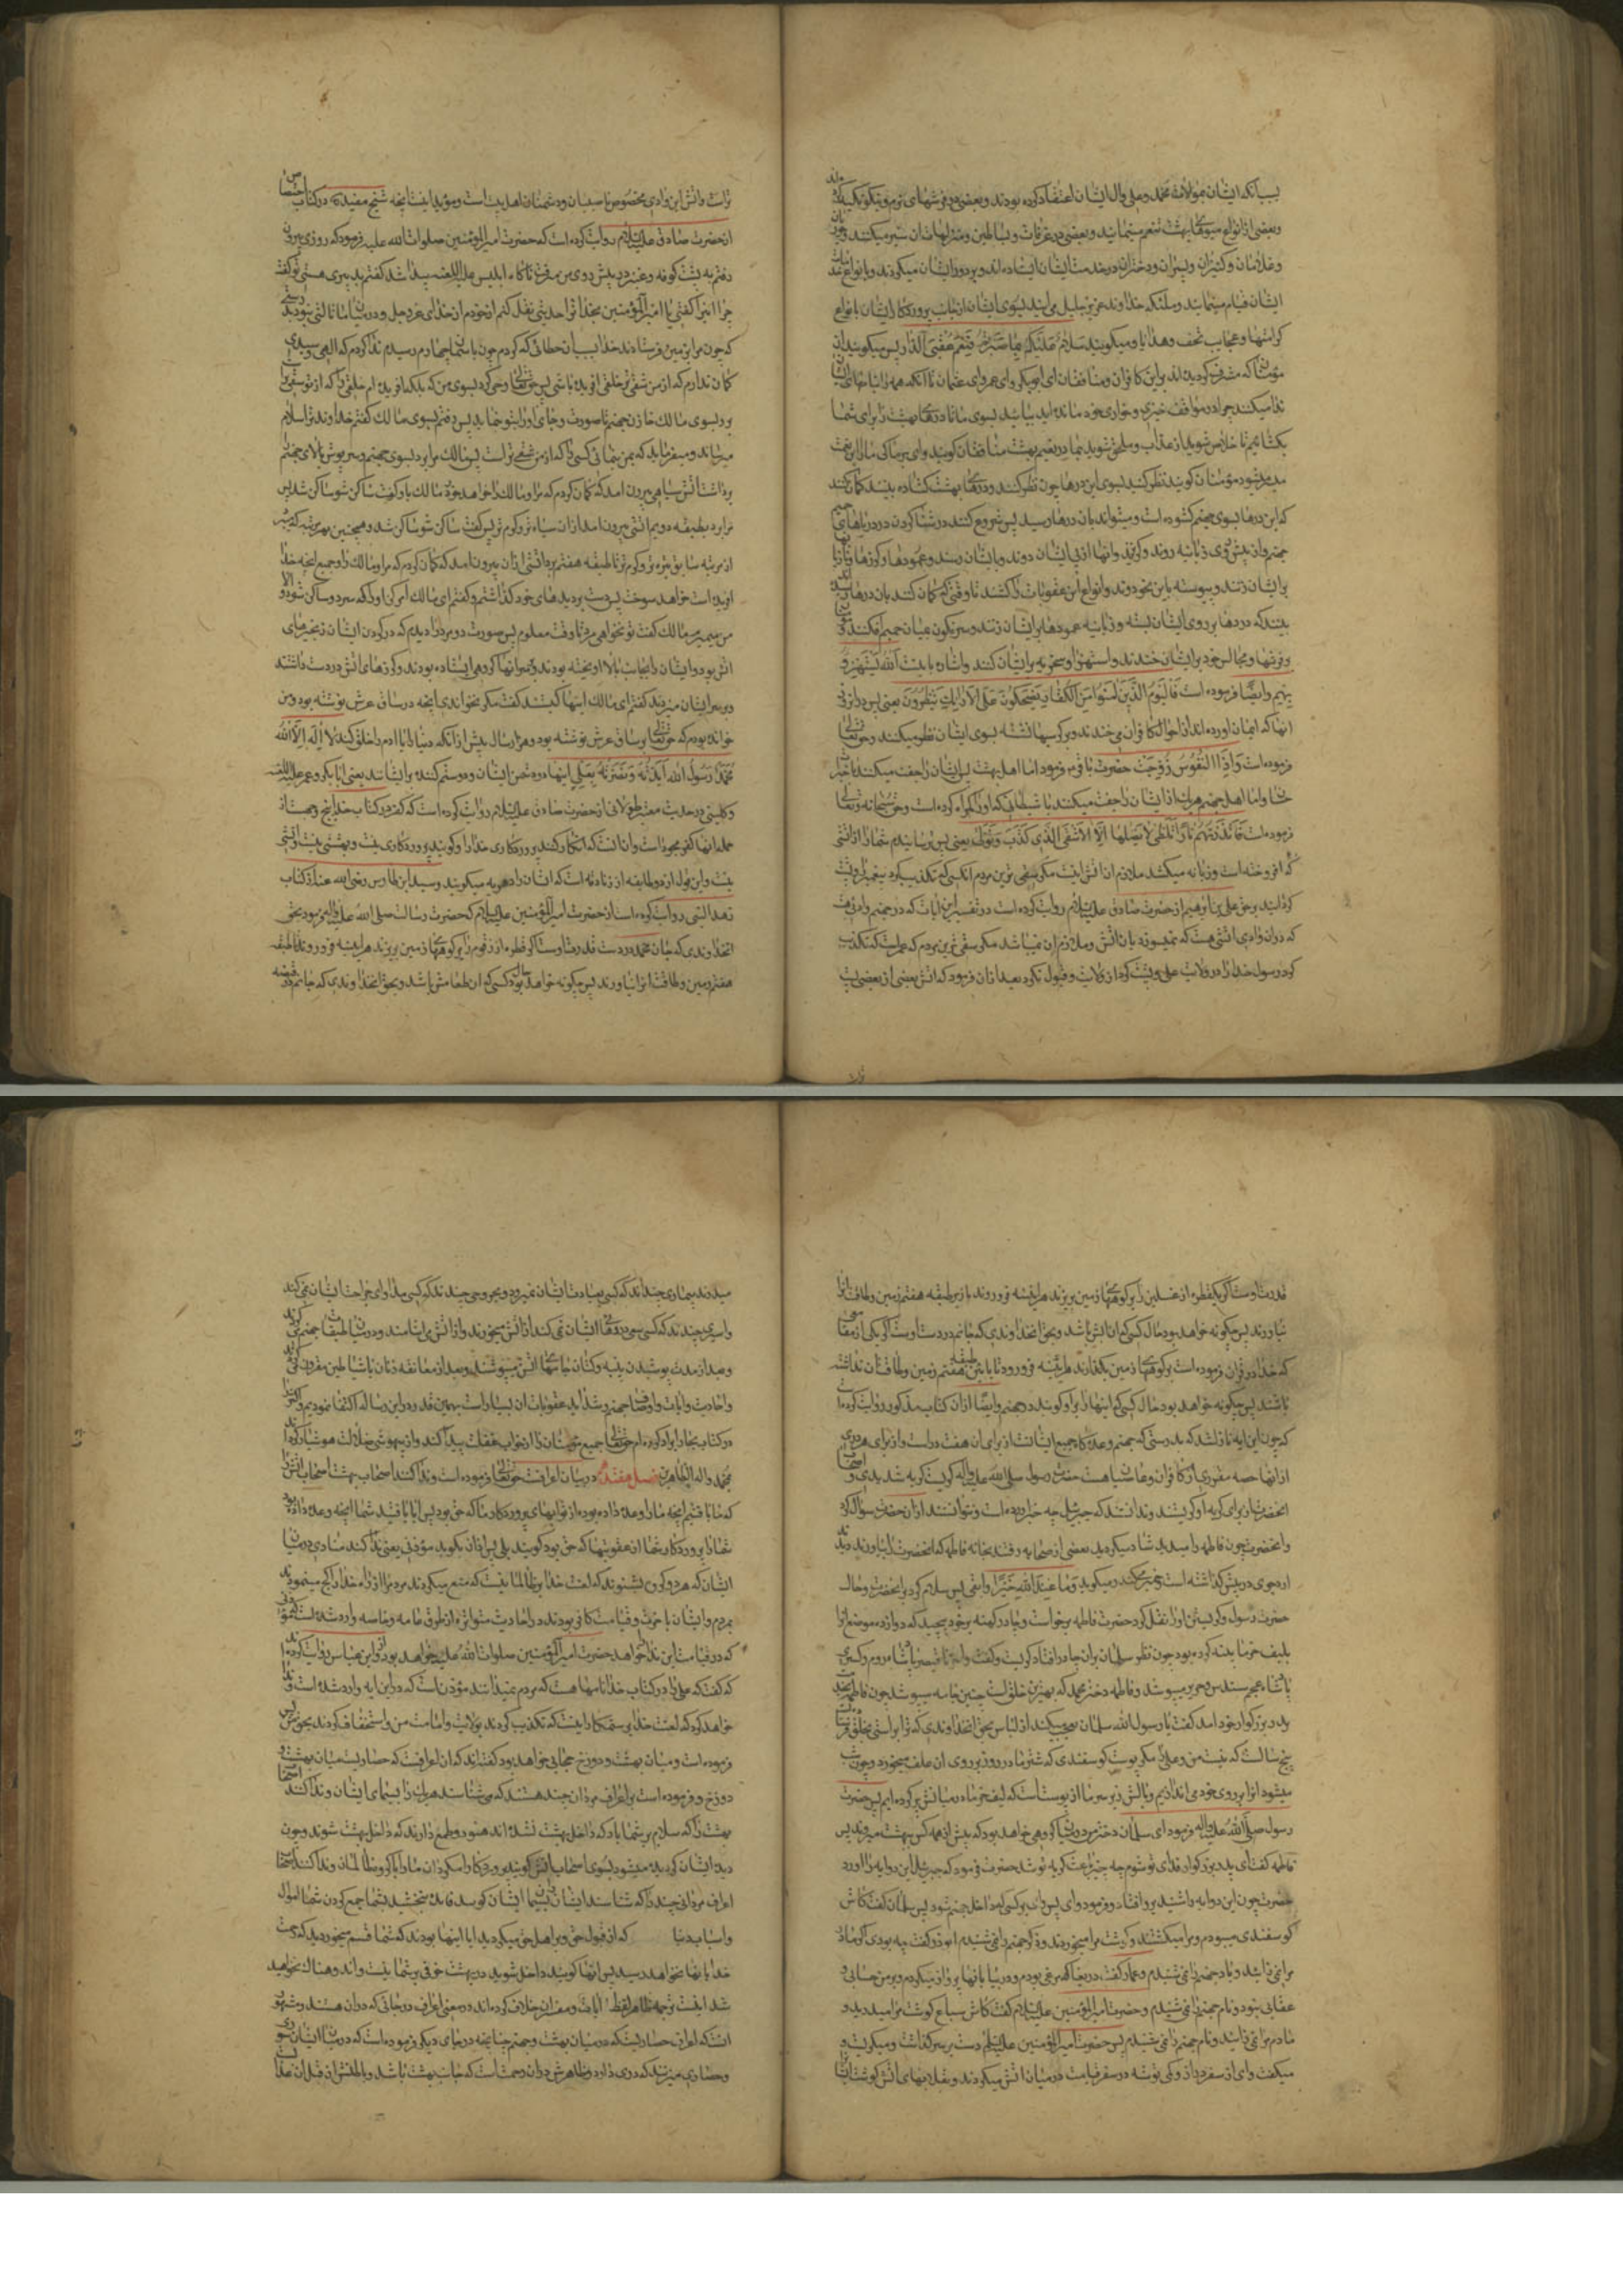 بسبب آنکه ایشان بموالات محمد و علی و آل ایشان اعتقاد کرده بودند و بعضی در فرشهای نرم و نیکو تکیه
و بعضی از انواع میوهای بهشت تنعم مینمایند و بعضی در غرفات و بساطین و منزلهات آن سیر میکنند و حوریان
و غلامان و کنیزان و پسران و دختران در خدمت ایشان ایستاده‌اند و بر دور ایشان میکردند و بانواع خدمات
ایشان قیام مینمایند و ملئکه خداوند عزیز جلیل می‌آیند بسوی ایشان از جانب پروردکار ایشان بانواع
کرامتها و عجایب تحف و هدایا و میکویند سلام علیکم بما صبرتم فنعم عقبی الدار پس میکویند این
مؤمنان که مشرف کردیده‌اند بر این کافران و منافقان ای ابوبکر و ای عمر و ای عثمان تا آنکه همه را بنامهای ایشان
ندا میکنند چرا در مواقف خزی و خواری خود مانده‌اید بیائید بسوی ما تا درهای بهشت را برای شما
بکشائیم تا خلاص شوید از عذاب و ملحق شوید بما در نعیم بهشت منافقان کویند وای بر ما کی ما را این نعمت
میسر میشود مؤمنان کویند نظر کنید بسوی این درها چون نظر کنند و درهای بهشت کشاده بینند کمان کنند
که این درها بسوی جهنم کشوده است و میتوانند بآن درها رسید پس شروع کنند در شنا کردن در دریاهای حمیم
جهنم و از پیش روی زبانیه روند و کریزند و آنها از پی ایشان دوند و بایشان رسند و عمودها و کرزها و تازیانها
بر ایشان زنند و پیوسته باین نحو روند و انواع این عقوبات را کشند تا وقتی که کمان کنند بآن درها رسیدند
بینند که درها بر روی ایشان بسته و زبانیه عمودها بر ایشان زنند و سرنکون بمیان جحیم افکنند و مؤمنان
بر فرشها و مجالس خود بر ایشان خندند و استهزا و سخریه بر ایشان کنند و اشاره باینست الله یستهزئ
بهم و ایضا فرموده است فالیوم الذین آمنوا من الکفار یضحکون علی الارائک ینظرون یعنی پس در این روز
آنها که ایمان آورده‌اند از احوال کافران میخندند و بر کرسیها نشسته بسوی ایشان نظر میکنند و حق تعالی
فرموده است و اذا النفوس زوجت حضرت باقر ع فرمود اما اهل بهشت پس ایشان را جفت میکنند با خیرات
حسان و اما اهل جهنم هر یک از ایشان را جفت میکنند با شیطانی که او را کمراه کرده است و حق سبحانه و تعالی
فرموده است فانذرتکم نارا تلظی لا یصلیها الا الاشقی الذی کذب و تولی یعنی پس ترسانیدم شما را از آتشی
که افروخته است و زبانه میکشد ملازم آن آتش نیست مکر شقی ترین مردم آنکسی که تکذیب کرد پیغمبران و پشت
کردانید بر حق علی بن ابرهیم از حضرت صادق علیه السلام روایت کرده است در تفسیر این آیات که در جهنم وادئی هست
که در آن وادی آتشی هست که نمیسوزد بآن آتش و ملازم آن نمیباشد مکر شقی ترین مردم که عمر است که تکذیب
کرد رسول خدا را در ولایت علی و پشت کردانید از ولایت و قبول نکرد بعد از آن فرمود که آتش بعضی از بعضی پست
تر است و آتش این وادی مخصوص ناصبیان و دشمنان اهل بیت است و مؤید اینست آنچه شیخ مفید ره در کتاب اختصاص
از حضرت صادق علیه السلام روایت کرده است که حضرت امیرالمؤمنین صلوات الله علیه فرمود که روزی بیرون
رفتم به پشت کوفه و قنبر در پیش روی من میرفت ناکاه ابلیس علیه اللعنه پیدا شد کفتم بد پیری هستی تو کفت
چرا این را کفتی یا امیرالمؤمنین بخدا ترا حدیثی نقل کنم از خودم از خدای عزوجل و در میان ما ثالثی نبود بدرستی
که چون مرا بزمین فرستادند خدا بسبب آن خطائی که کردم چون بآسمان چهارم رسیدم ندا کردم که الهی و سیدی
کمان ندارم که از من شقی تر خلقی آفریده باشی پس حق تعالی وحی کرد بسوی من که بلکه آفریده‌ام خلقی را که از تو شقی تر است
برو بسوی مالک خازن جهنم تا صورت و جای او را بتو بنماید پس رفتم بسوی مالک کفتم خداوند ترا سلام
میرساند و میفرماید که بمن بنمائی کسی را که از من شقی تر است پس مالک مرا برد بسوی جهنم و سرپوش بالای جهنم
برداشت آتش سیاهی بیرون آمد که کمان کردم که مرا و مالک را خواهد خورد مالک باو کفت ساکن شو ساکن شد پس
مرا برد بطبقه دویم آتشی بیرون آمد از آن سیاه تر و کرم تر پس کفت ساکن شو ساکن شد و همچنین بهر مرتبه که میبرد
از مرتبه سابق تیره تر و کرم تر تا طبقه هفتم برد آتشی از آن بیرون آمد که کمان کردم که مرا و مالک را و جمیع آنچه خدا
آفریده است خواهد سوخت پس دست بر دیدهای خود کذاشتم و کفتم ای مالک امر کن او را که سرد و ساکن شود و الا
من میمیرم مالک کفت تو نخواهی مرد تا وقت معلوم پس صورت دو مرد را دیدم که در کردن ایشان زنجیرهای
آتش بود و ایشان را بجانب بالا آویخته بودند و بر سر آنها کروهی ایستاده بودند و کرزهای آتش در دست داشتند
و بر سر ایشان میزدند کفتم ای مالک اینها کیستند کفت مکر نخواندی آنچه در ساق عرش نوشته بود و من
خوانده بودم که حق تعالی بر ساق عرش نوشته بود دو هزار سال پیش از آنکه دنیا را یا آدم را خلق کند لا اله الا الله
محمد رسول الله ایدته و نصرته بعلی اینها دو دشمن ایشان و دو ستم کننده بر ایشانند یعنی ابابکر و عمر علیهما اللعنه
و کلینی در حدیث معتبر طولانی از حضرت صادق علیه السلام روایت کرده است که کفر در کتاب خدا پنج وجهست از
جمله آنها کفر جحود است و آن آنست که انکار کنند پروردکاری خدا را و کویند پروردکاری نیست و بهشتی نیست و آتشی
نیست و این قول از دو طایفه از زنادقه است که ایشان را دهریه میکویند و سید ابن طاوس رضی الله عنه از کتاب
زهد النبی روایت کرده است از حضرت امیرالمؤمنین علیه السلام که حضرت رسالت صلی الله علیه و آله فرمود بحق
آنخداوندی که جان محمد در دست قدرت اوست که اکر قطره از زقوم را بر کوههای زمین بریزند هرآینه فرو روند تا طبقه
هفتم زمین و طاقت آن را نیاورند پس چکونه خواهد بود حال کسی که آن طعامش باشد و بحق آنخداوندی که جانم در قبضه
قدرت اوست که اکر یکقطره از غسلین را بر کوههای زمین بریزند هرآینه فرو روند تا زیر طبقه هفتم زمین و طاقت آن را
نیاورند پس چکونه خواهد بود حال کسی که آن آبش باشد و بحق آنخداوندی که جانم در دست اوست که اکر یکی از مقامع
که خدا در قرآن فرموده است بر کوههای زمین بکذارند هرآینه فرو رود تا پایین طبقه هفتم زمین و طاقت آن نداشته
باشند پس چکونه خواهد بود حال کسی که اینها را بر او کوبند در جهنم و ایضا از آن کتاب مذکور روایت کرده است
که چون این آیه نازل شد که بدرستی که جهنم وعده‌کاه جمیع ایشانست از برای آن هفت در است و از برای هر دری
از آنها حصه مقرری از کافران و عاصیان هست حضرت رسول صلی الله علیه و آله کریست کریه شدیدی و اصحاب
آنحضرت از برای کریه او کریستند و ندانستند که جبرئیل چه خبر آورده است و نتوانستند از آن حضرت سؤال کرد
و آنحضرت چون فاطمه را میدید شاد میکردید بعضی از صحابه رفتند بخانه فاطمه که آنحضرت را بیاورند دیدند
آرد جوی در پیش کذاشته است و خمیر میکند و میکوید و ما عند الله خیر و ابقی پس سلام کرد بر آنحضرت و حال
حضرت رسول و کریستن او را نقل کرد حضرت فاطمه برخواست و چادر کهنه بر خود پیچید که دوازده موضع آن را
بلیف خرما پینه کرده بود چون نظر سلمان بر آن چادر افتاد کریست و کفت واحزناه قیصر پادشاه روم و کسری
پادشاه عجم سندس و حریر میپوشد و فاطمه دختر محمد که بهترین خلق است چنین جامه میپوشد چون فاطمه بخدمت
پدر بزرکوار خود آمد کفت یا رسول الله سلمان تعجب میکند از لباس من بحق آنخداوندی که ترا براستی بخلق فرستاده
پنج سال است که نیست من و علی را مکر پوست کوسفندی که شتر ما در روز بر روی آن علف میخورد و چون شب
میشود آنرا بر روی خود می‌اندازیم و بالش زیر سر ما از پوستست که لیف خرما در میانش پر کرده‌ایم پس حضرت
رسول صلی الله علیه و آله فرمود ای سلمان دختر من در میان کروهی خواهد بود که پیش از همه کس ببهشت میروند پس
فاطمه کفت ای پدر بزرکوار فدای تو شوم چه چیز باعث کریه تو شد حضرت فرمود که جبرئیل این دو آیه را آورد
حضرت چون این دو آیه را شنید برو افتاد و فرمود وای پس وای بر کسی که داخل جهنم شود پس سلمان کفت کاش
کوسفندی میبودم و مرا میکشتند و کوشت مرا میخوردند و ذکر جهنم را نمی شنیدم ابوذر کفت چه بودی اکر مادر
مرا نمی زائید و یاد جهنم را نمی شنیدم و عمار کفت دریغا که مرغی بودم و در بیابانها پرواز میکردم و بر من حسابی و
عقابی نبود و نام جهنم را نمی شنیدم و حضرت امیرالمؤمنین علیه السلام کفت کاش سباع کوشت مرا میدریدند و
مادرم مرا نمی زائید و نام جهنم را نمی شنیدم پس حضرت امیرالمؤمنین علیه السلام دست بر سر کذاشت و میکریست و
میکفت وای از سفر دراز و کمی توشه در سفر قیامت در میان آتش میکردند و بقلابهای آتش کوشت ایشان را
میدرند بیماری چندند که کسی بعیادت ایشان نمیرود و مجروحی چندند که کسی مداوای جراحت ایشان نمی کند
و اسیری چندند که کسی سعی در رهائی ایشان نمی کند از آتش میخورند و از آتش می آشامند و در میان طبقات جهنم می کردند
و بعد از مدت پوشیدن پنبه و کتان جامهای آتش میپوشند و بعد از معانقه زنان با شیاطین مقرون می کردند
و احادیث و آیات و اوصاف جهنم و شداید عقوبات آن بسیار است بهمین قدر در این رساله اکتفا نمودیم و اکثر را
در کتاب بحار ایراد کرده‌ام حق تعالی جمیع مؤمنان را از خواب غفلت بیدار کند و از بیهوشی ضلالت هوشیار کرداند
بمحمد و آله الطاهرین فصل هفتدهم در بیان اعرافست حق تعالی فرموده است و ندا کنند اصحاب بهشت اصحاب آتش را
که ما یافتیم آنچه ما را وعده داده بود از ثوابهای پروردکار ما که حق بود پس آیا یافتید شما آنچه وعده داده بود
شما را پروردکار شما از عقوبتها که حق بود کویند بلی پس اذان بکوید مؤذنی یعنی ندا کند منادی در میان
ایشان که هر دو کروه بشنوند که لعنت خدا بر ظالمانیست که منع میکردند مردم را از راه خدا و کج مینمودند
بمردم و ایشان بآخرت و قیامت کافر بودند در احادیث متواتره از طرق عامه و خاصه وارد شده است که مؤذنی
که در قیامت این ندا خواهد حضرت امیرالمؤمنین صلوات الله علیه خواهد بود و ابن عباس روایت کرده
که کفت که علی را در کتاب خدا نامها هست که مردم نمیدانند مؤذنست که در این آیه وارد شده است و ندا
خواهد کرد که لعنت خدا بر ستمکارانیست که تکذیب کردند بولایت و امامت من و استخفاف کردند بحق من پس
فرموده است و میان بهشت و دوزخ حجابی خواهد بود کفته‌اند که آن اعرافست که حصاریست میان بهشت و
دوزخ و فرموده است بر اعراف مردان چند هستند که می شناسند هر یک را بسیمای ایشان و ندا کنند اصحاب
بهشت را که سلام بر شما باد که داخل بهشت نشده‌اند هنوز و طمع دارند که داخل بهشت شوند و چون
دیدهٔ ایشان کردیده میشود بسوی اصحاب آتش کویند پروردکارا مکردان ما را با کروه ظالمان و ندا کنند اصحاب
اعراف مردانی چند را که شناسند ایشان را بسیمای ایشان کویند فایده نبخشید بشما جمع کردن شما اموال
و اسباب دنیا که از قبول حق و بر اهل حق میکردید آیا اینها بودند که شما قسم میخوردید که رحمت
خدا بآنها نخواهد رسید پس بآنها کویند داخل شوید در بهشت خوفی بر شما نیست و اندوهناک نخواهید
شد اینست ترجمه ظاهر لفظ آیات و مفسران خلاف کرده‌اند در معنی اعراف و رجالی که در آن هستند و مشهور
آنست که اعراف حصاریست که در میان بهشت و جهنم چنانچه در جای دیکر فرموده است که در میان ایشان سوری
و حصاری میزنند که دری دارد و ظاهرش در آن رحمت است که جانب بهشت باشد و باطنش از قبل آن عذابست